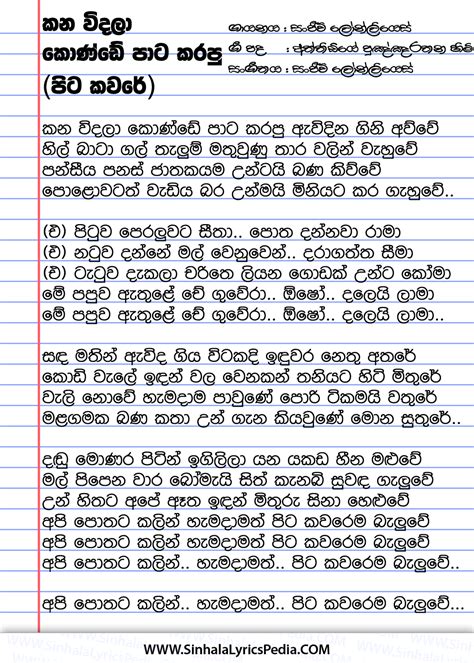 කන විදලා
කොණ්ඩේ පාට කරපු
(පිට කවරේ)
ගායනය : සංජීව් ලෝන්ලියෙස්
ගී පද : අත්තිඩියේ පුඤ්ඤරතන හිමි
සංගීතය : සංජීව් ලෝන්ලියෙස්
කන විදලා කොණ්ඩේ පාට කරපු ඇවිදින ගිනි අව්වේ
හිල් බාටා ගල් තැලුම් මතුවුණු තාර වලින් වැහුවේ
පන්සීය පනස් ජාතකයම උන්ටයි බණ කිව්වේ
පොළොවටත් වැඩිය බර උන්මයි මිනියට කර ගැහුවේ..
(ඒ) පිටුව පෙරලුවට සීතා.. පොත දන්නවා රාමා
(ඒ) නටුව දන්නේ මල් වෙනුවෙන්.. දරාගත්ත සීමා
(ඒ) ටැටුව දැකලා චරිතෙ ලියන ගොඩක් උන්ට කෝමා
මේ පපුව ඇතුළේ චේ ගුවේරා.. ඕෂෝ.. දලෙයි ලාමා
මේ පපුව ඇතුළේ චේ ගුවේරා.. ඕෂෝ.. දලෙයි ලාමා..
සඳ මතින් ඇවිද ගිය විටකදි ඉඳුවර නෙතු අතරේ
කොඩි වැලේ ඉඳන් වල වෙනකන් තනියට හිටි මිතුරේ
වැලි නොවේ හැමදාම පාවුණේ පොරි ටිකමයි වතුරේ
මළගමක බණ කතා උන් ගැන කියවුණේ මොන සුතුරේ..
දඬු මොණර පිටින් ඉගිලිලා යන යකඩ හීන මළුවේ
මල් පිපෙන වාර බෝමැයි සිත් කැනබි සුවඳ ගැලුවේ
උන් හිතට අපේ ඈත ඉඳන් මිතුරු සිනා හෙළුවේ
අපි පොතට කලින් හැමදාමත් පිට කවරෙම බැලුවේ
අපි පොතට කලින් හැමදාමත් පිට කවරෙම බැලුවේ
අපි පොතට කලින්.. හැමදාමත්.. පිට කවරෙම බැලුවේ..
අපි පොතට කලින්.. හැමදාමත්.. පිට කවරෙම බැලුවේ...
WWW.SinhalaLyricsPedia.COM